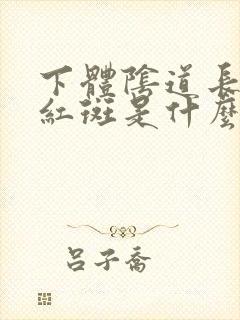 下體陰道長
紅斑是什麼
呂子喬